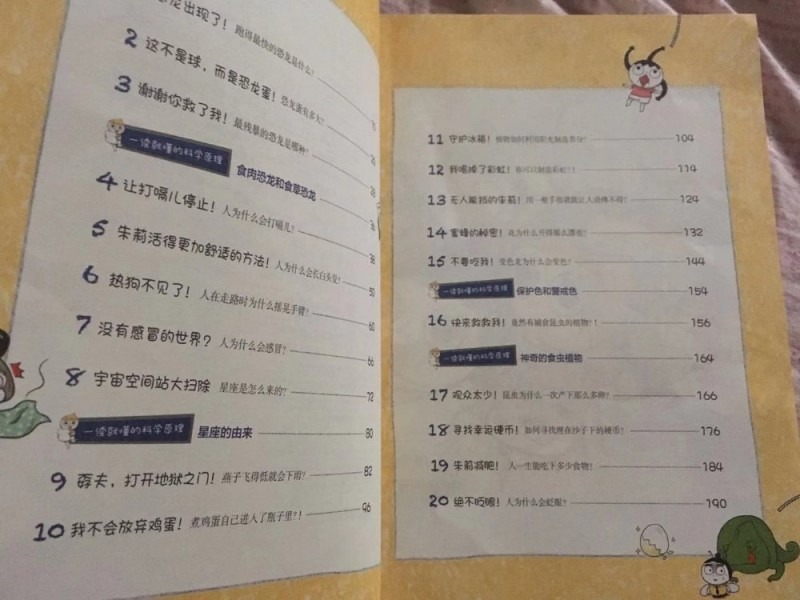 恐龙出现了！ 跑得最快的恐龙是什么？
2 这不是球，而是恐龙蛋！ 恐龙蛋有多大？
3 谢谢你救了我！ 最残暴的恐龙是哪种？
一读就懂的科学原理 食肉恐龙和食草恐龙
4 让打嗝儿停止！ 人为什么会打嗝儿？ 36
5 朱莉活得更加舒适的方法！ 人为什么会长白头发？ 50
6 热狗不见了！ 人在走路时为什么摇晃手臂？ 60
7 没有感冒的世界？ 人为什么会感冒？ 66
8 宇宙空间站大扫除 星座是怎么来的？ 72
一读就懂的科学原理 星座的由来 80
9 孬夫，打开地狱之门！ 燕子飞得低就会下雨？ 82
10 我不会放弃鸡蛋！ 煮鸡蛋自己进入了瓶子里？！ 96
11 守护冰箱！ 植物如何利用阳光制造养分？ 104
12 我喝掉了彩虹！ 你可以制造彩虹？！ 114
13 无人能挡的朱莉！ 用一根手指就能让人动弹不得？ 124
14 蜜蜂的秘密！ 花为什么开得那么漂亮？ 132
15 不要吃我！ 变色龙为什么会变色？ 144
一读就懂的科学原理 保护色和警戒色 154
16 快来救救我！ 竟然有捕食昆虫的植物？！ 156
一读就懂的科学原理 神奇的食虫植物 164
17 观众太少！ 昆虫为什么一次产下那么多卵？ 166
18 寻找幸运硬币！ 如何寻找埋在沙子下的硬币？ 176
19 朱莉减肥！ 人一生能吃下多少食物？ 184
20 绝不眨眼！ 人为什么会眨眼？ 190